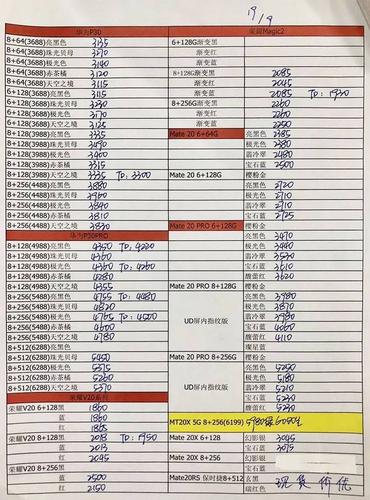 19/9
华为P30
8+64(3688)亮黑色 3135
8+64(3688)珠光贝母 3270
8+64(3688)极光色 3140
8+64(3688)赤茶橘 3120
8+64(3688)天空之境 3115
亮黑色 3115
珠光贝母 3230
极光色 3171
天空之境 3125
8+128(3988)亮黑色 3335
8+128(3988)珠光贝母 3490
8+128(3988)极光色 3400
8+128(3988)赤茶橘 3315
8+128(3988)天空之境 3335 TD: 3300
8+256(4488)亮黑色 3880
8+256(4488)珠光贝母 3960
8+256(4488)极光色 3940
8+256(4488)赤茶橘 3810
8+256(4488)天空之境 3830
华为P30PRO
8+128(4988)亮黑色 4350 TD: 4220
8+128(4988)珠光贝母 4360
8+128(4988)极光色 4360 TD: 4260
8+128(4988)赤茶橘 4280
8+128(4988)天空之境 4355
8+256(5488)亮黑色 4755 TD: 4480
8+256(5488)珠光贝母 4820
8+256(5488)极光色 4765 TD: 4500
8+256(5488)赤茶橘 4600
8+256(5488)天空之境 4780
8+512(6288)亮黑色
8+512(6288)珠光贝母 5450
8+512(6288)极光色 5375
8+512(6288)赤茶橘 5260
8+512(6288)天空之境 5370
荣耀V20系列
荣耀V20 6+128黑 1860
蓝 1860
红 1865
荣耀V20 8+128黑 2013 TD: 1950
蓝 2013
红 2045
荣耀V20 8+256黑
蓝 2500
红 2150
荣耀Magic2
6+128G渐变黑
渐变红
渐变蓝
8+128G渐变黑 2085
渐变红 2045
渐变蓝 2085 TD: 1930
8+256G渐变黑 2260
渐变红 2260
渐变蓝 2250
Mate 20 6+64G 亮黑色 2385
极光色 2380
翡冷翠 2480
宝石蓝 2500
Mate 20 6+128G 樱粉金
亮黑色 2720
极光色 2710
翡冷翠 2710
宝石蓝 2725
Mate 20 PRO 6+128G 樱粉金
亮黑色 3470
极光色 3440
翡冷翠 3530
宝石蓝 3610
馥蕾红 3620
Mate 20 PRO 8+128G 樱粉金
亮黑色 3980
极光色 3870
UD屏内指纹版 翡冷翠 3980
宝石蓝 4060
馥蕾红 4110
璨星蓝
Mate 20 PRO 8+256G 亮黑色 5250
极光色 5180
UD屏内指纹版 翡冷翠 5210
宝石蓝 5230
馥蕾红 5230
MT20X 5G 8+256(6199)
Mate 20X 6+128 幻影银 3045
宝石蓝 3075
Mate 20X 8+256 幻影银
宝石蓝
Mate20RS 保时捷8+512 玄黑
瑞红色
现货价优